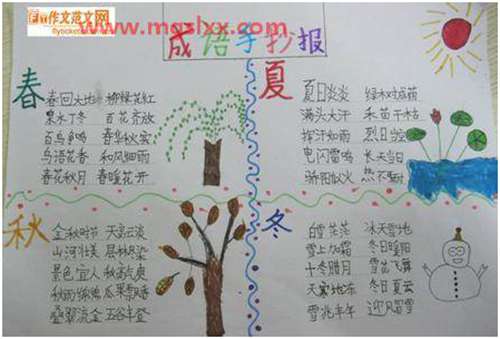 作文范文网
www.mgslxx.com
成语手抄报
春
春回大地 柳绿花红
泉水丁冬 百花齐放
百鸟争鸣 春华秋实
鸟语花香 和风细雨
春花秋月 春暖花开
夏
夏日炎炎 绿树成荫
满头大汗 禾苗干枯
挥汗如雨 烈日当空
电闪雷鸣
骄阳似火
秋
金秋时节 天高云淡
山河壮美 层林尽染
景色宜人 秋高气爽
秋雨绵绵 瓜果飘香
叠翠流金 五谷丰登
冬
白雪茫茫 冰天雪地
雪上加霜 冬日暖阳
十冬腊月 雪花飞舞
天寒地冻 冬日夏云
雪兆丰年 迎风冒雪